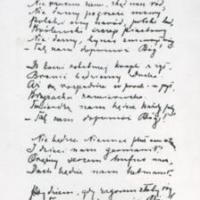 Nie rzucim ziemi, skąd nasz ród,
Nie damy pogrześć mowy
Polski my naród, polski lud,
Królewski szczep piastowy
Nie damy, by nas
— Tak nam dopomóż Bóg!
Do krwi ostatniej kropli z żył
Bronić będziemy Ducha
Aż się rozpadnie w proch i w pył
Krzyżacka zawierucha
Twierdzą nam będzie każdy próg
— Tak nam dopomóż Bóg!
Nie będzie Niemiec pluł nam
I dzieci nam germanił
Orężny hufiec nasz
Duch będzie nam hetmanił
Pójdziem, gdy złoty róg
Tak nam dopomóż Bóg!